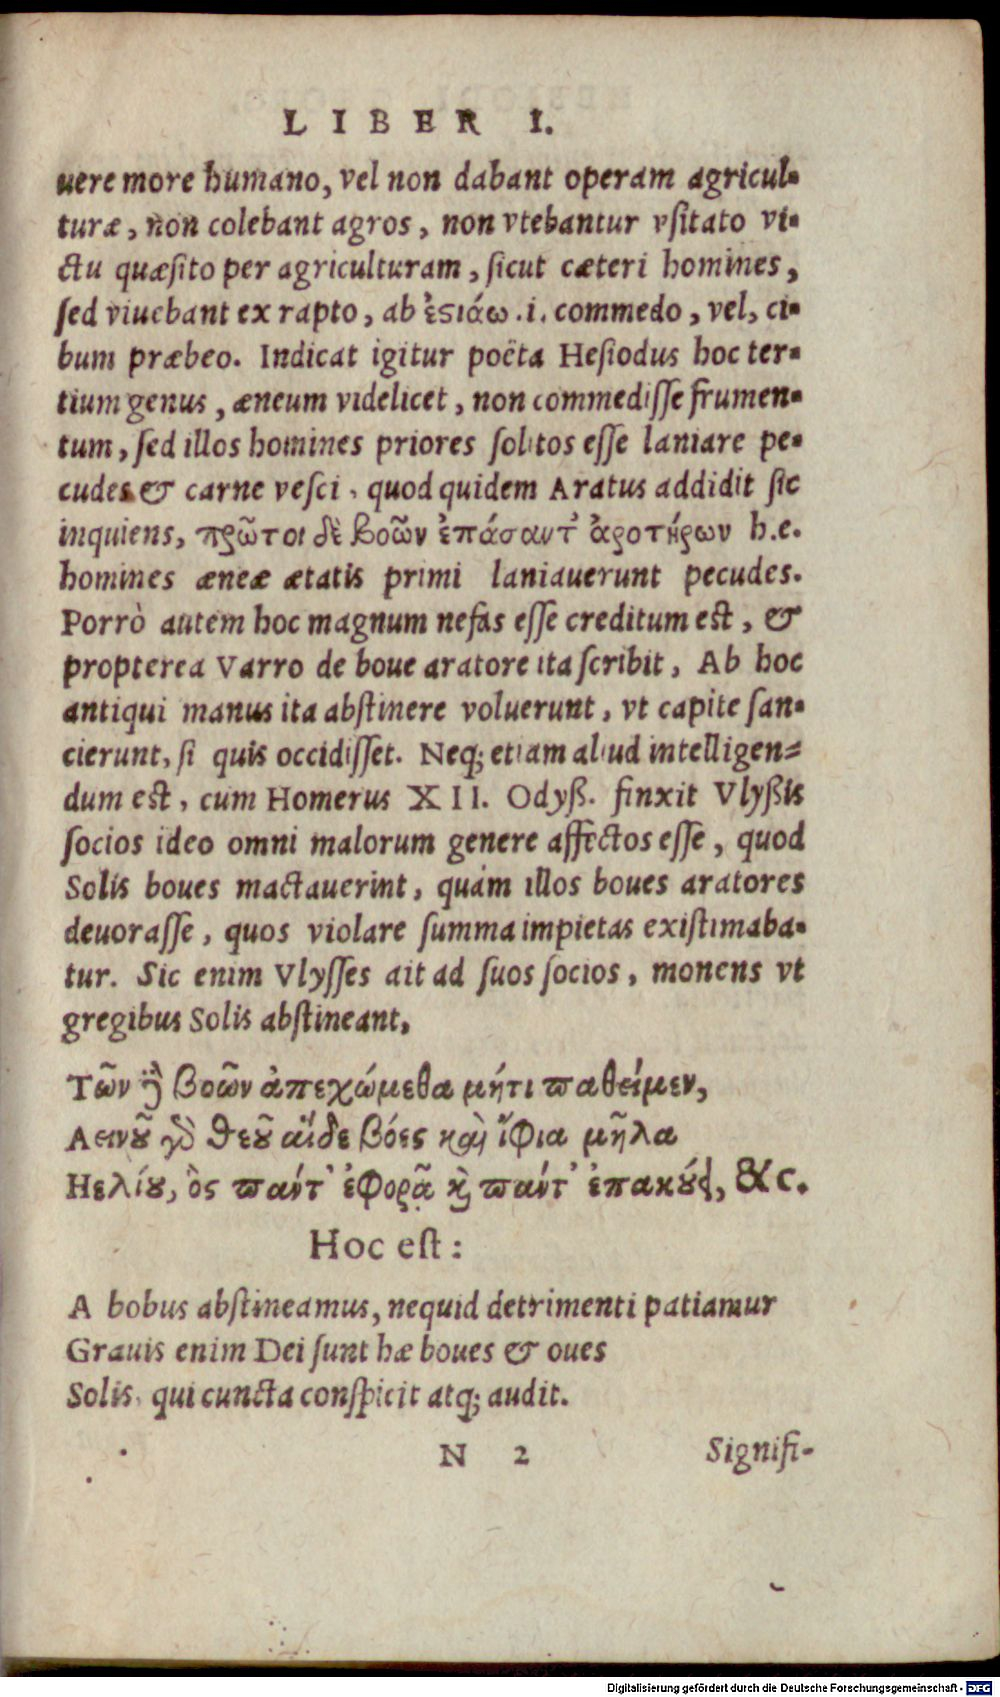 LIBER I.
uere more humano, vel non dabant operam agricul-
turæ, non colebant agros, non vtebantur vsitato vi-
ctu quæsito per agriculturam, sicut cæteri homines,
sed viuebant ex rapto, ab ἑϛιάω .i. commedo, vel, ci-
bum præbeo. Indicat igitur poëta Hesiodus hoc ter-
tium genus, æneum videlicet, non commedisse frumen-
tum, sed illos homines priores solitos esse laniare pe-
cudes & carne vesci, quod quidem Aratus addidit sic
inquiens, πρῶτοι δὲ βοῶν ἐπάσαντ' ἀροτήρων h.e.
homines æneæ ætatis primi laniauerunt pecudes.
Porrò autem hoc magnum nefas esse creditum est, &
propterea Varro de boue aratore ita scribit, Ab hoc
antiqui manus ita abstinere voluerunt, vt capite san-
cierunt, si quis occidisset. Neq; etiam aliud intelligen-
dum est, cum Homerus XII. Odyß. finxit Vlyßis
socios ideo omni malorum genere affectos esse, quod
Solis boues mactauerint, quám illos boues aratores
deuorasse, quos violare summa impietas existimaba-
tur. Sic enim Vlysses ait ad suos socios, monens vt
gregibus Solis abstineant,
Τῶν ἢ βοῶν ἀπεχώμεθα μήτι παθείμεν,
Δεινοῦ γὸ θεοῦ αἵδε βόες καὶ ἴφια μῆλα
Ηελίου, ὃς πάντ' ἐφορᾷ κὶ πάντ' ἐπακούει, &c.
Hoc est:
A bobus abstineamus, nequid detrimenti patiamur
Grauis enim Dei sunt hæ boues & oues
Solis, qui cuncta conspicit atq; audit.
N 2 Signifi-
Digitalisierung gefördert durch die Deutsche Forschungsgemeinschaft - DFG